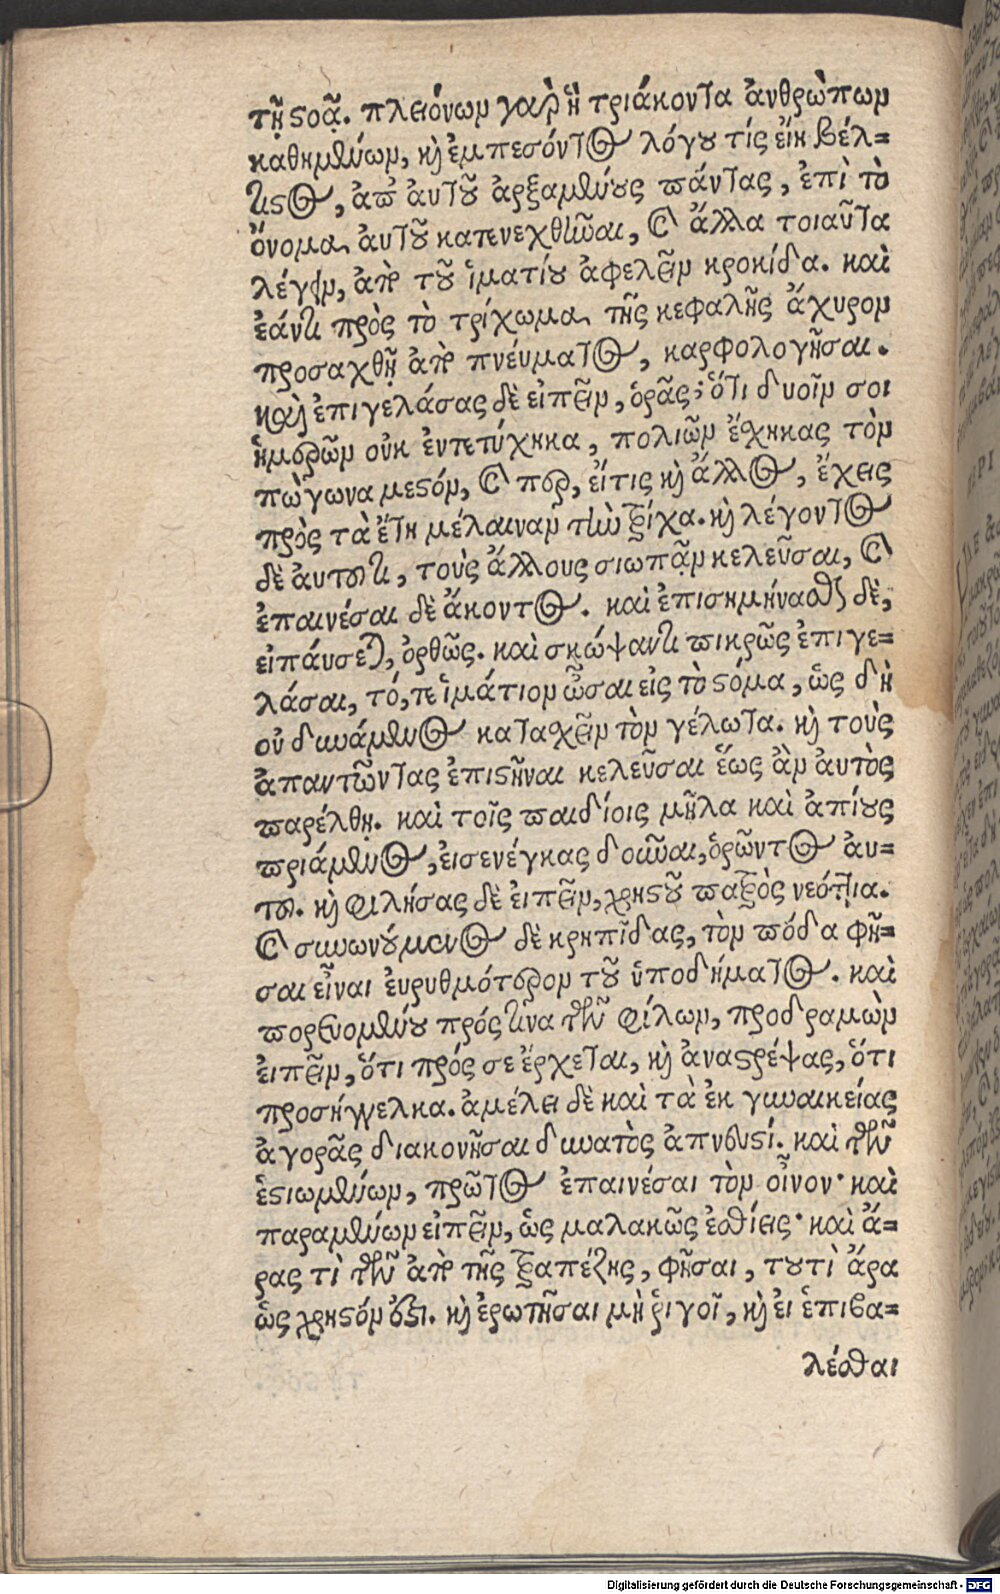 τῇ στοᾷ. πλειόνων γαρ ἢ τριάκοντα ἀνθρώπων
καθημένων, καὶ ἐμπεσόντος λόγου τίς εἴη βέλ-
τιστος, ἀπ' ἀυτοῦ ἀρξαμένους πάντας, ἐπὶ τὸ
ὄνομα ἀυτοῦ κατενεχθῆναι, καὶ ἄλλα τοιαῦτα
λέγειν, ἀπὸ τοῦ ἱματίου ἀφελεῖν κροκίδα. καὶ
ἐάντι πρὸς τὸ τρίχωμα τῆς κεφαλῆς ἄχυρον
προσαχθῇ ἀπὸ πνέυματος, καρφολογῆσαι.
καὶ ἐπιγελάσας δὲ ἐιπεῖν, ὁρᾷς; ὅτι δυοῖν σοι
ἡμερῶν οὐκ ἐντετύχηκα, πολιῶν ἔχηκας τὸν
πώγωνα μεστόν, καὶ περ, ἔιτις καὶ ἄλλος, ἔχεις
πρὸς τὰ ἔτη μέλαιναν τὴν τρίχα. καὶ λέγοντος
δὲ ἀυτου τι, τοὺς ἄλλους σιωπᾷν κελεῦσαι, καὶ
ἐπαινέσαι δὲ ἄκοντος. καὶ ἐπισημήνασθαι δὲ,
εἰ πάυσεται, ὀρθῶς. καὶ σκώψαντι πικρῶς ἐπιγε-
λάσαι, τό, τε ἱμάτιον ὦσαι εἰς τὸ στόμα, ὡς δὴ
οὐ δυνάμενος κατασχεῖν τὸν γέλωτα. καὶ τοὺς
ἀπαντῶντας ἐπιστῆναι κελεῦσαι ἕως ἂν ἀυτὸς
παρέλθῃ. καὶ τοῖς παιδίοις μῆλα καὶ ἀπίους
πριάμενος, ἐισενέγκας δοῦναι, ὁρῶντος ἀυ-
του. καὶ φιλήσας δὲ ἐιπεῖν, χρηστοῦ πατρὸς νεόττια.
καὶ συνωνούμενος δὲ κρηπῖδας, τὸν πόδα φῆ-
σαι εἶναι ἐυρυθμότερον τοῦ ὑποδήματος. καὶ
πορευομένου πρός τινα τῶν φίλων, προδραμὼν
ἐιπεῖν, ὅτι πρός σε ἔρχεται, καὶ ἀναστρέψας, ὅτι
προσήγγελκα. ἀμέλει δὲ καὶ τὰ ἐκ γυναικείας
ἀγορᾶς διακονῆσαι δυνατὸς ἀπνευστί. καὶ τῶν
ἑστιωμένων, πρῶτος ἐπαινέσαι τὸν οἶνον· καὶ
παραμένων εἰπεῖν, ὡς μαλακῶς ἐσθίεις· καὶ ἄ-
ρας τὶ τῶν ἀπὸ τῆς τραπέζης, φῆσαι, τουτὶ ἄρα
ὡς χρηστόν ἐστι. καὶ ἐρωτῆσαι μὴ ῥιγοῖ, καὶ εἰ ἐπιβα-
λέσθαι
Digitalisierung gefördert durch die Deutsche Forschungsgemeinschaft - DFG